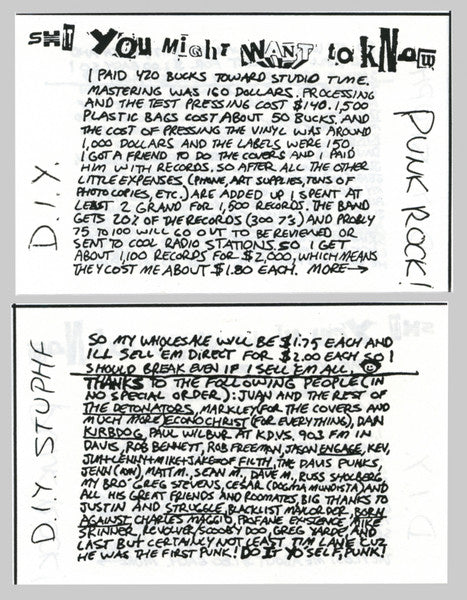 SHIT YOU Might WANT to kNow
I PAID 420 BUCKS TOWARD STUDIO TIME.
MASTERING WAS 160 DOLLARS. PROCESSING
AND THE TEST PRESSING COST $140. 1,500
PLASTIC BAGS COST ABOUT 50 BUCKS. AND
THE COST OF PRESSING THE VINYL WAS AROUND
1,000 DOLLARS AND THE LABELS WERE 150
I GOT A FRIEND TO DO THE COVERS AND I PAID
HIM WITH RECORDS. SO AFTER ALL THE OTHER
LITTLE EXPENSES (PHONE, ART SUPPLIES, TONS OF
PHOTO COPIES, ETC.) ARE ADDED UP I SPENT AT
LEAST 2 GRAND FOR 1,500 RECORDS. THE BAND
GETS 20% OF THE RECORDS (300 7"s) AND PROBLY
75 TO 100 WILL GO OUT TO BE REVIEWED OR
SENT TO COOL RADIO STATIONS. SO I GET
ABOUT 1,100 RECORDS FOR $2,000, WHICH MEANS
THEY COST ME ABOUT $1.80 EACH. MORE→
D.I.Y.
PUNK ROCK!
SO MY WHOLESALE WILL BE $1.75 EACH AND
ILL SELL 'EM DIRECT FOR $2.00 EACH SO I
SHOULD BREAK EVEN IF I SELL 'EM ALL.
THANKS TO THE FOLLOWING PEOPLE (IN
NO SPECIAL ORDER): JUAN AND THE REST OF
THE DETONATORS, MARKLEY (FOR THE COVERS AND
MUCH MORE) ECONOCHRIST (FOR EVERYTHING), DAN
KIRBDOG, PAUL WILBUR AT K.D.V.S. 90.3 FM IN
DAVIS, ROB BENNETT, ROB FREEMAN, JASON ENGAGE, KEV,
JIM+LENNY+MIKE+JAKE OF FILTH, THE DAVIS PUNKS,
JENN (RON), MATT M., SEAN M., DAVE M., RUSS SHOLBERG,
MY BRO GREG STEVENS, CESAR (DOGMA MUNDISTA) AND
ALL HIS GREAT FRIENDS AND ROOMATES, BIG THANKS TO
JUSTIN AND STRUGGLE, BLACKLIST MAILORDER, BORN
AGAINST, CHARLES MAGGIO, PROFANE EXISTENCE, MIKE
SKINNER, REVOLVER/SCOOBY DOO, GREG YARDE AND
LAST BUT CERTAINLY NOT LEAST TIM LANE CUZ
HE WAS THE FIRST PUNK! DO IT YO SELF, PUNK!
D.I.Y. STUPHF